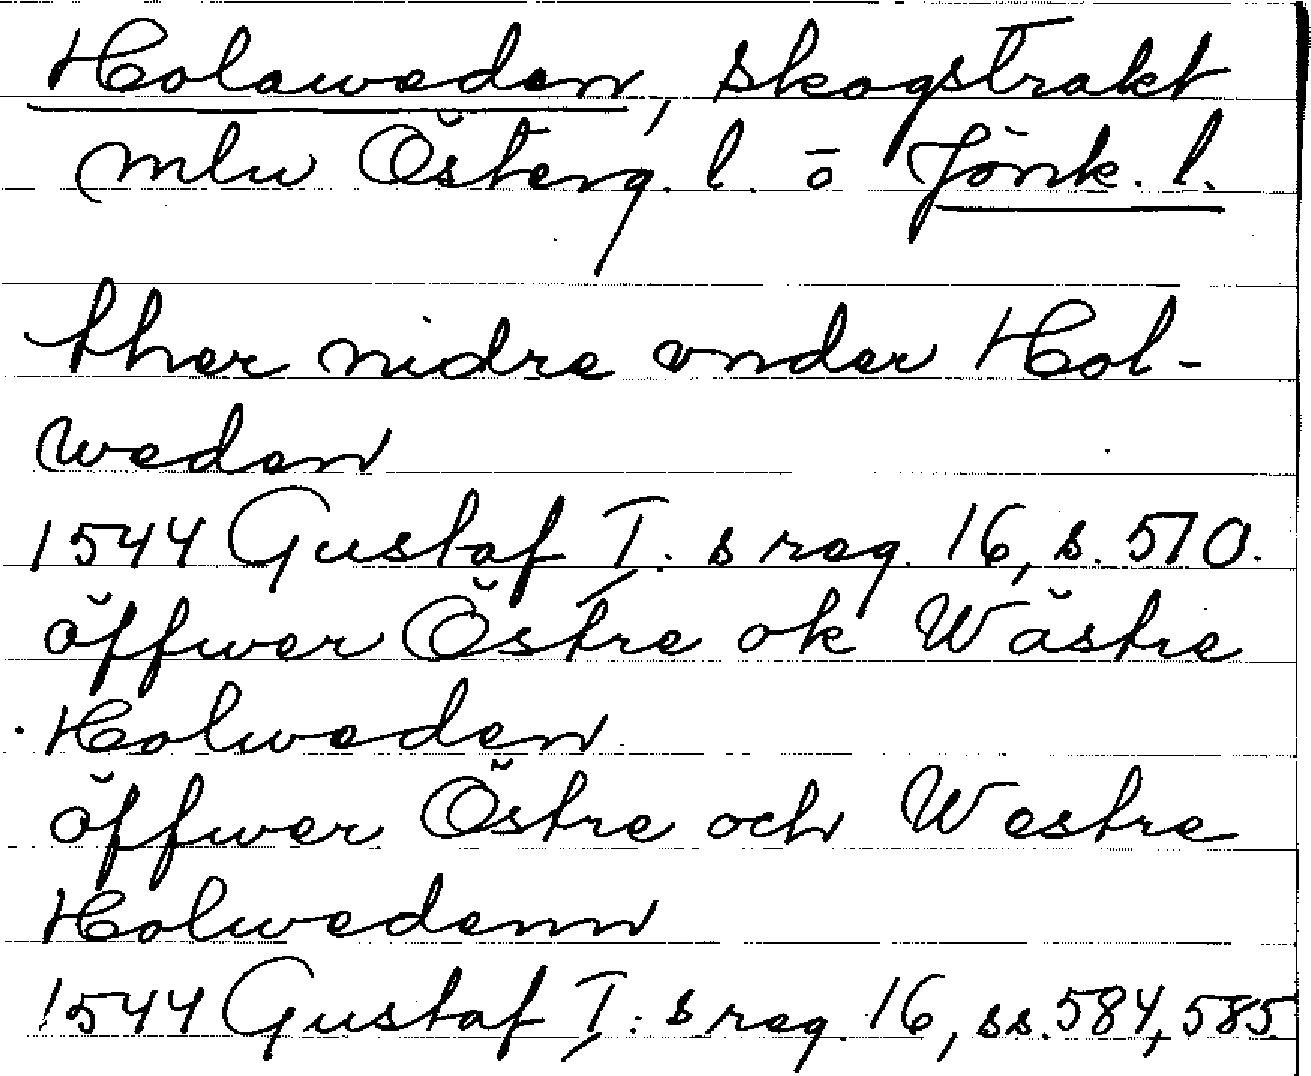 Holaweden, skogstrakt
mln Österg. l. o Jönk. l.
ther nidre onder Hol-
weden
1544 Gustaf I:s reg. 16, s. 510.
öffwer Östre ok Wästre
Holweden
öffwer Östre och Westre
Holwedenn
1544 Gustaf I:s reg. 16, ss. 584, 585